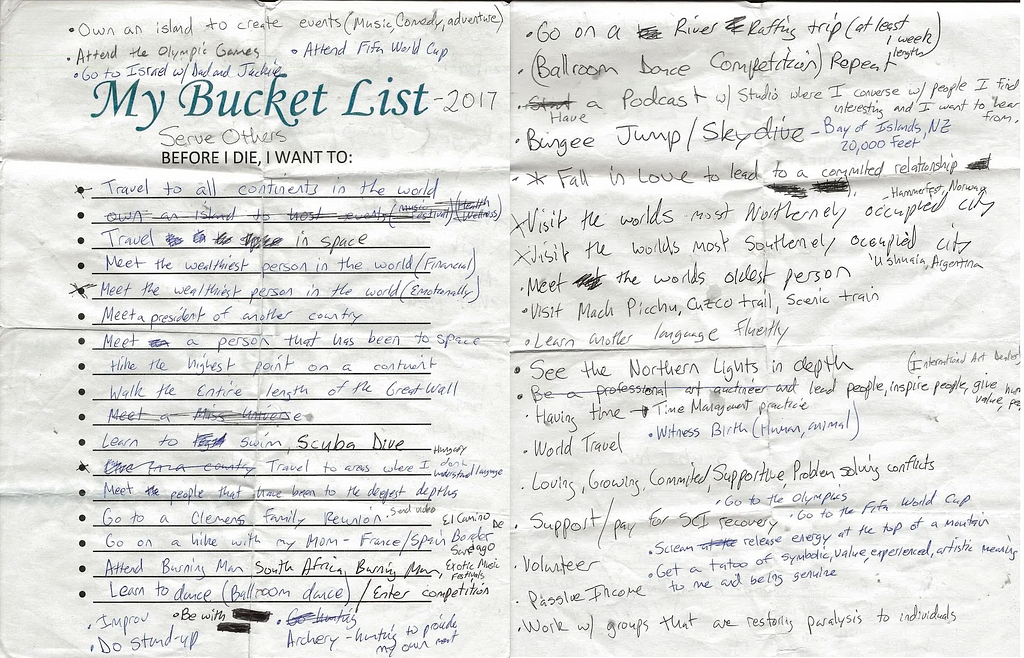 • Own an island to create events (Music, Comedy, adventure)
• Attend the Olympic Games • Attend Fifa World Cup
• Go to Israel w/ Dad and Jackie
My Bucket List -2017
Serve Others
BEFORE I DIE, I WANT TO:
• Travel to all continents in the world
• own an island to host events (music festival) (Health Wellness)
• Travel in space
• Meet the wealthiest person in the world (Financial)
• Meet the wealthiest person in the world (Emotionally)
• Meet a president of another country
• Meet a person that has been to space
• Hike the highest point on a continent
• Walk the Entire length of the Great Wall
• Meet a Miss Universe
• Learn to swim, Scuba Dive
• Live in a country Travel to areas where I don't understand language Hungary
• Meet the people that have been to the deepest depths
• Go to a Clemens Family Reunion • Send video
• Go on a hike with my Mom - France/Spain Border El Camino De Santiago
• Attend Burning Man, South Africa, Burning Man, Exotic Music Festivals
• Learn to dance (Ballroom dance) / Enter competition
• Improv • Be with • Go hunting
• Do Stand-up Archery - hunting to provide
my own meat
• Go on a River Rafting trip (at least 1 week length)
• (Ballroom Dance Competition) Repeat
• Start a Podcast w/ Studio where I converse w/ people I find
Have interesting and I want to hear from.
• Bungee Jump / Skydive - Bay of Islands, NZ
20,000 feet
• * Fall in Love to lead to a commited relationship
Hammerfest, Norway
Visit the worlds most Northernely occupied city
Visit the worlds most Southernely occupied city
Ushuaia, Argentina
• Meet the worlds oldest person
• Visit Mach Picchu, Cuzco trail, Scenic train
• Learn another language fluently
• See the Northern Lights in depth (International Art Dealer)
• Be a professional art auctineer and lead people, inspire people, give value,
• Having time → Time Managment practice
• World Travel • Witness Birth (Human, animal)
• Loving, Growing, Commited, Supportive, Problem solving conflicts
• Go to the Olympics
• Support/pay for SCI recovery • Go to the Fifa World Cup
• Scream release energy at the top of a mountain
• Volunteer • Get a tatoo of symbolic, value, experienced, artistic meaning
to me and being genuine
• Passive Income
• Work w/ groups that are restoring paralysis to individuals